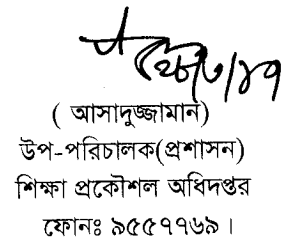 ( আসাদুজ্জামান)
উপ-পরিচালক(প্রশাসন)
শিক্ষা প্রকৌশল অধিদপ্তর
ফোনঃ ৯৫৫৭৭৬৯ ।